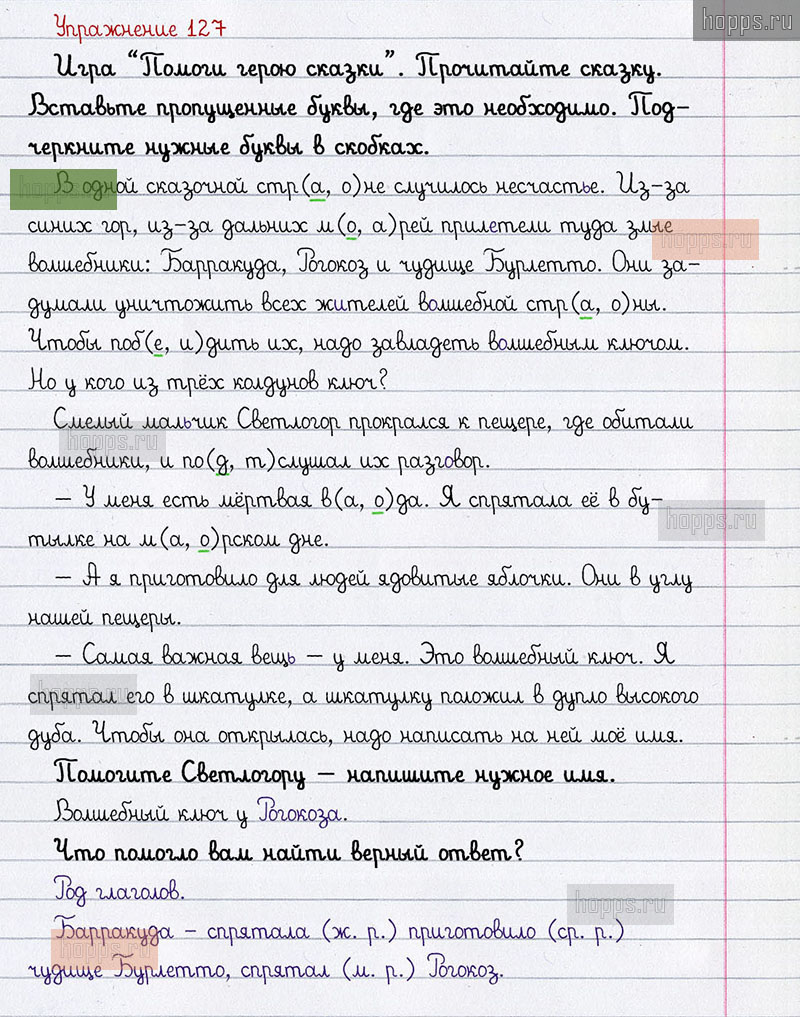 hopps.ru
Упражнение 127
Игра “Помоги герою сказки”. Прочитайте сказку.
Вставьте пропущенные буквы, где это необходимо. Под-
черкните нужные буквы в скобках.
В одной сказочной стр(а, о)не случилось несчастье. Из-за
синих гор, из-за дальних м(о, а)рей прилетели туда злые
волшебники: Барракуда, Рогокоз и чудище Бурлетто. Они за-
думали уничтожить всех жителей волшебной стр(а, о)ны.
Чтобы поб(е, и)дить их, надо завладеть волшебным ключом.
Но у кого из трёх колдунов ключ?
Смелый мальчик Светлогор прокрался к пещере, где обитали
волшебники, и по(д, т)слушал их разговор.
– У меня есть мёртвая в(а, о)да. Я спрятала её в бу-
тылке на м(а, о)рском дне.
– А я приготовило для людей ядовитые яблочки. Они в углу
нашей пещеры.
– Самая важная вещь – у меня. Это волшебный ключ. Я
спрятал его в шкатулке, а шкатулку положил в дупло высокого
дуба. Чтобы она открылась, надо написать на ней моё имя.
Помогите Светлогору – напишите нужное имя.
Волшебный ключ у Рогокоза.
Что помогло вам найти верный ответ?
Род глаголов.
Барракуда – спрятала (ж. р.) приготовило (ср. р.)
чудище Бурлетто, спрятал (м. р.) Рогокоз.